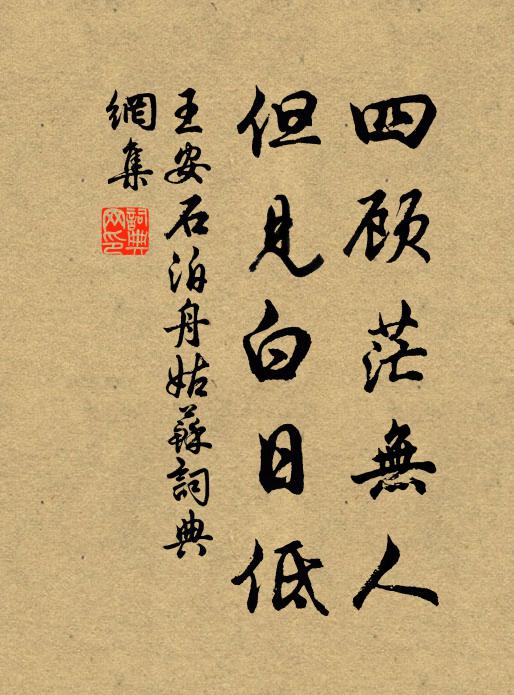 四顧茫無人
但見白日低
王安石泊舟姑蘇詞典
網集
詞典网印